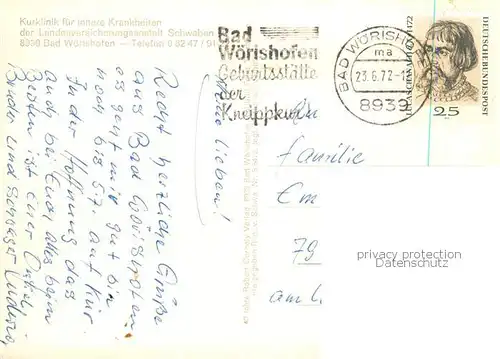 Kurklinik für innere Krankheiten
der Landesversicherungsanstalt Schwaben
8939 Bad Wörishofen – Telefon 0 82 47 /
Bad
Wörishofen
Geburtsstätte
der
Kneippkur
BAD WÖRISHOFEN
ma
23.6.72
8939
LUCAS CRANACH 1472
DEUTSCHE BUNDESPOST
25
Meine lieben!
Recht herzliche Grüße
aus Bad Wörishofen.
es geht mir gut bin
noch bis 5.7. auf Kur
In der Hoffnung das
auch bei Euch alles beim
Besten ist Euer Onkel
Bruder und Schwager Ludwig
An
Familie
Em
79
am
privacy protection
Datenschutz